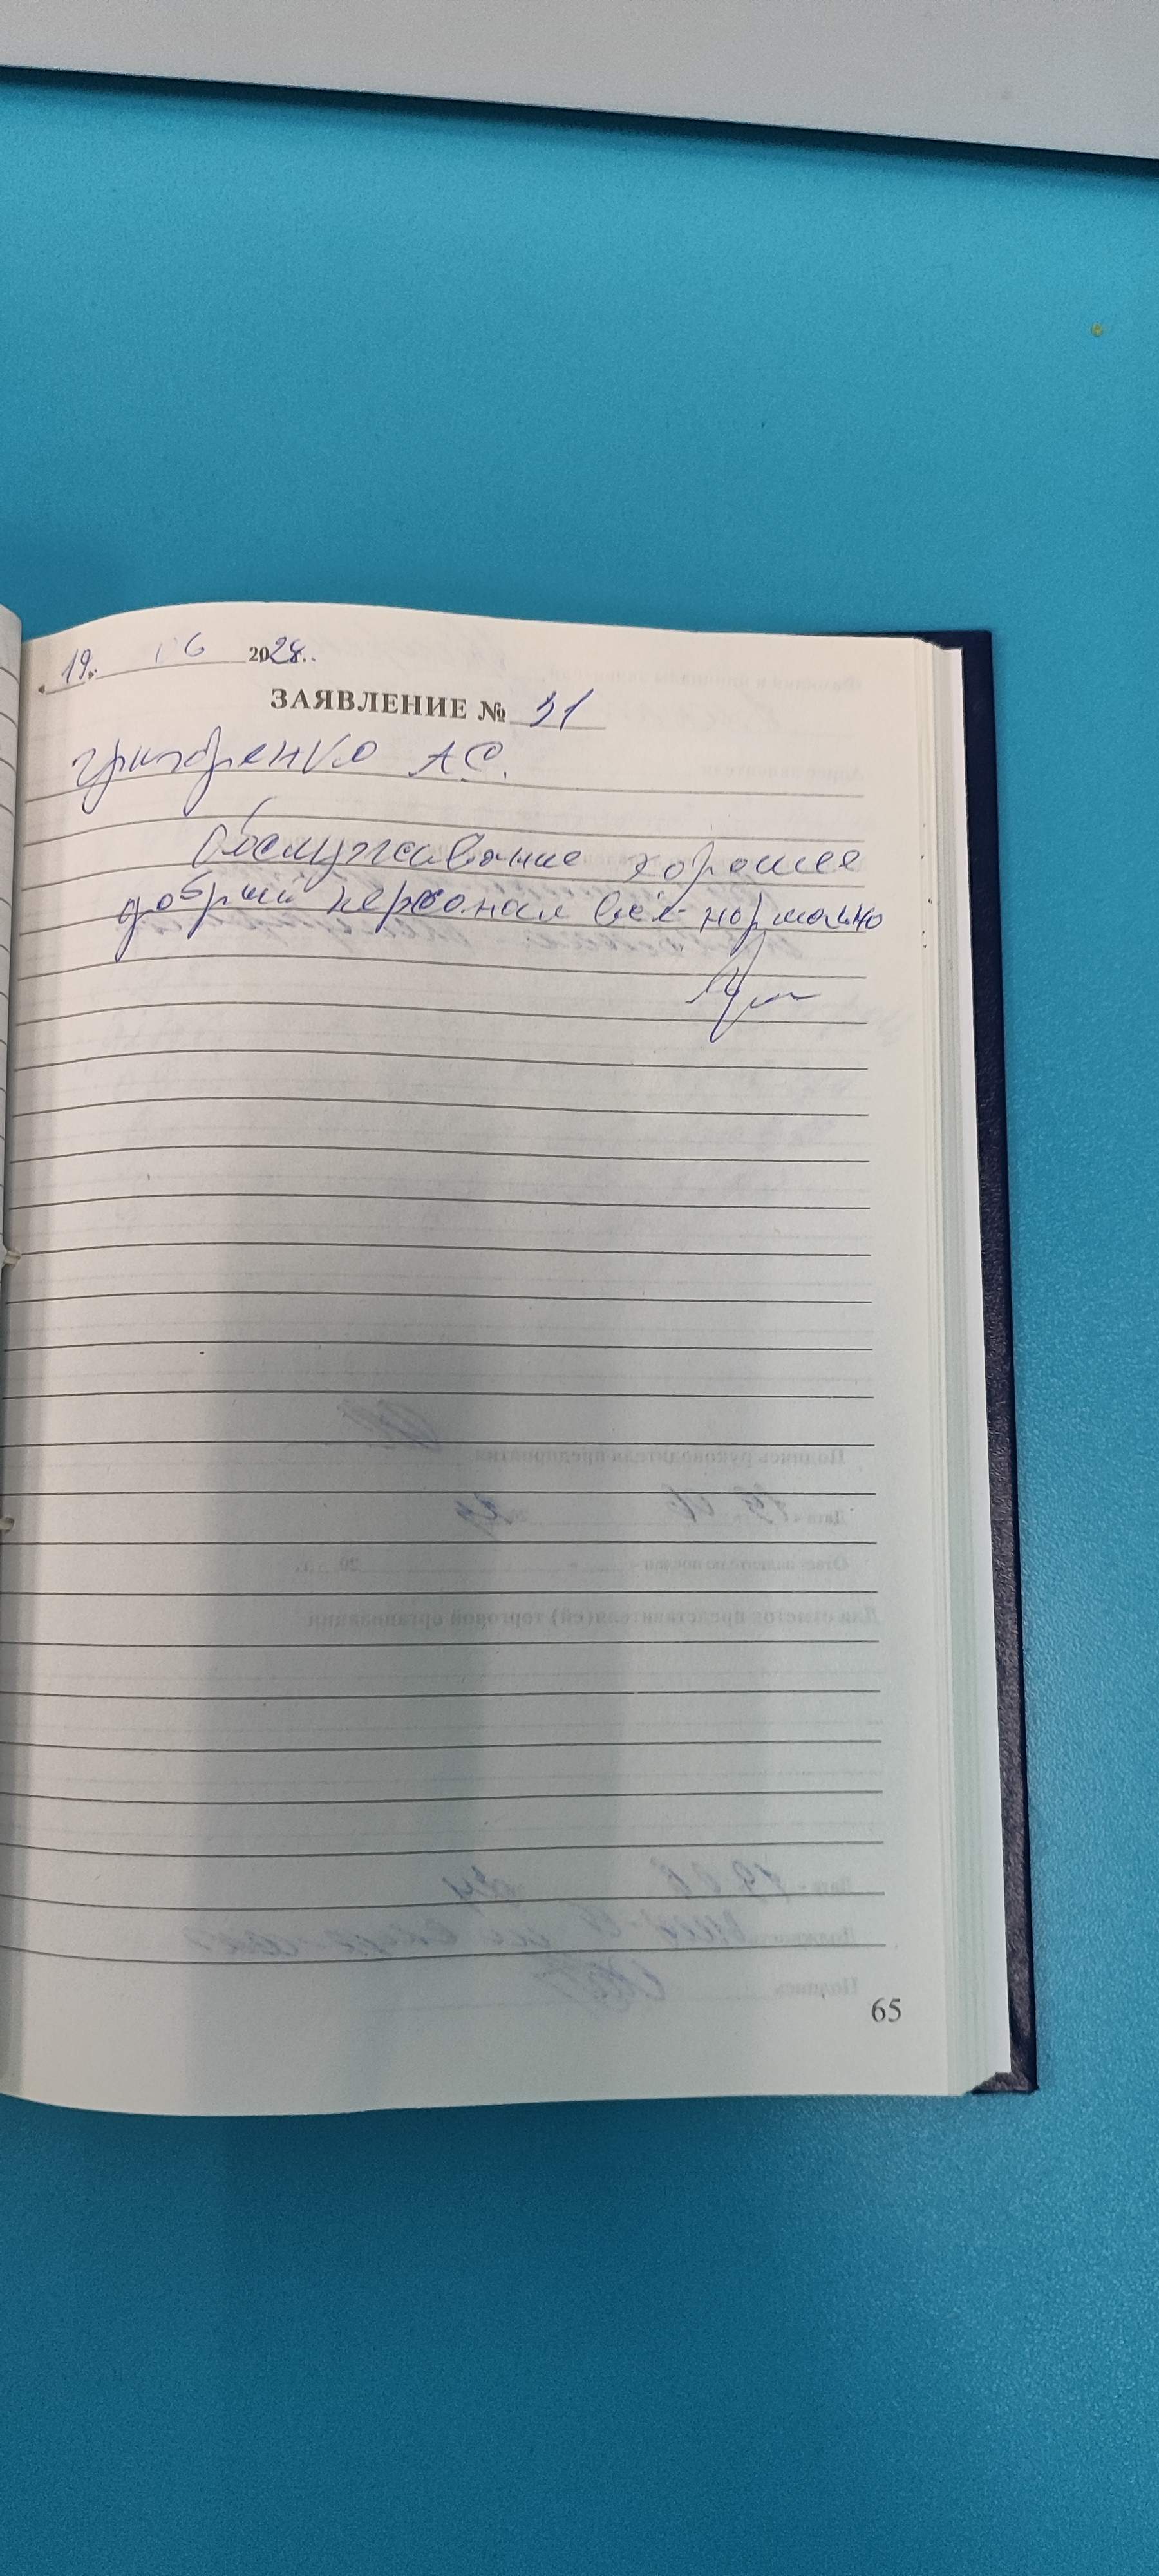 «19» 06 2024г.
ЗАЯВЛЕНИЕ № 31
Григоренко А.С.
Обслуживание хорошее
добрый персонал всё нормально
65